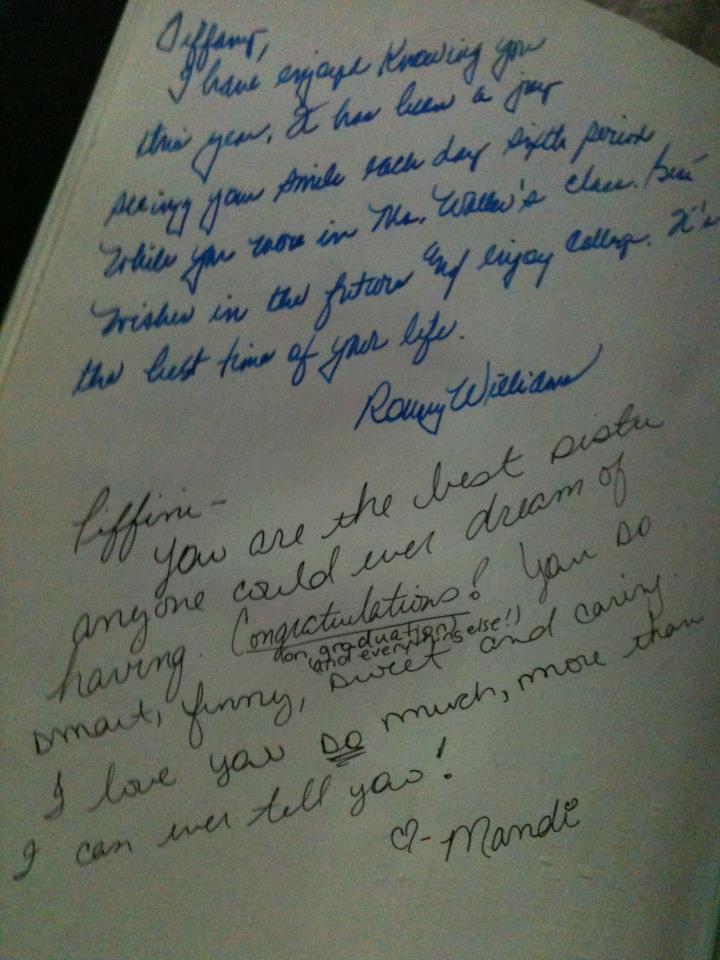 Tiffany,
I have enjoye Knowing you
this year. It has been a joy
seeing your smile each day sixth period
while you were in Ms. Waller's class. Best
wishes in the future and enjoy College. It's
the best time of your life.
Ronny Williams
Tiffini-
You are the best sister
anyone could ever dream of
having. Congratulations! You so
(on graduation)
(and everything else!)
smart, funny, sweet and caring.
I love you so much, more than
I can ever tell you!
♡- Mandi